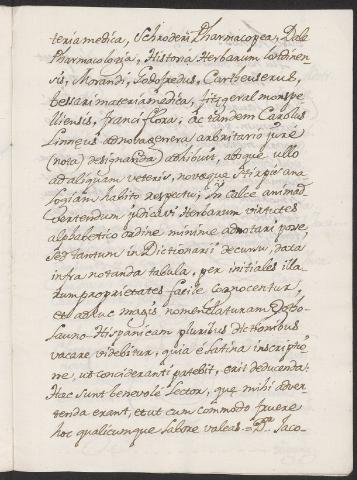 teria medica, Schroderi Pharmacopea, Dale
Pharmacologia, Historia Herbarum londinen-
sis, Morandi, Godofredus, Cartheuserus,
Lessari materia medica, fitzgeral monspe
lliensis, franci flora, ac tandem Carolus
Linneus ad nova genera arbritario jure
(nota) designanda adhibuit, absque ullo
ad aliquam veteris, novæque stirpis ana
logiam habito respectu; In calce animad
vertendum judicavi Herbarum virtutes
alphabetico ordine minime adnotari posse,
Sed tantum in Dictionarii decursu, data
infra notanda tabula, per initiales illa-
rum proprietates facile cognocentur,
et adhuc magis nomenclaturam
launo-Hispanicam pluribus dictionibus
vacare videbitur, quia é Latina inscriptio
ne, ut concideranti patebit, erit deducenda:
Hæc sunt benevole Lector, que mihi adver-
tenda erant, et ut cum commodo fruere
hoc qualicumque labore valeas = Dr. Jaco-